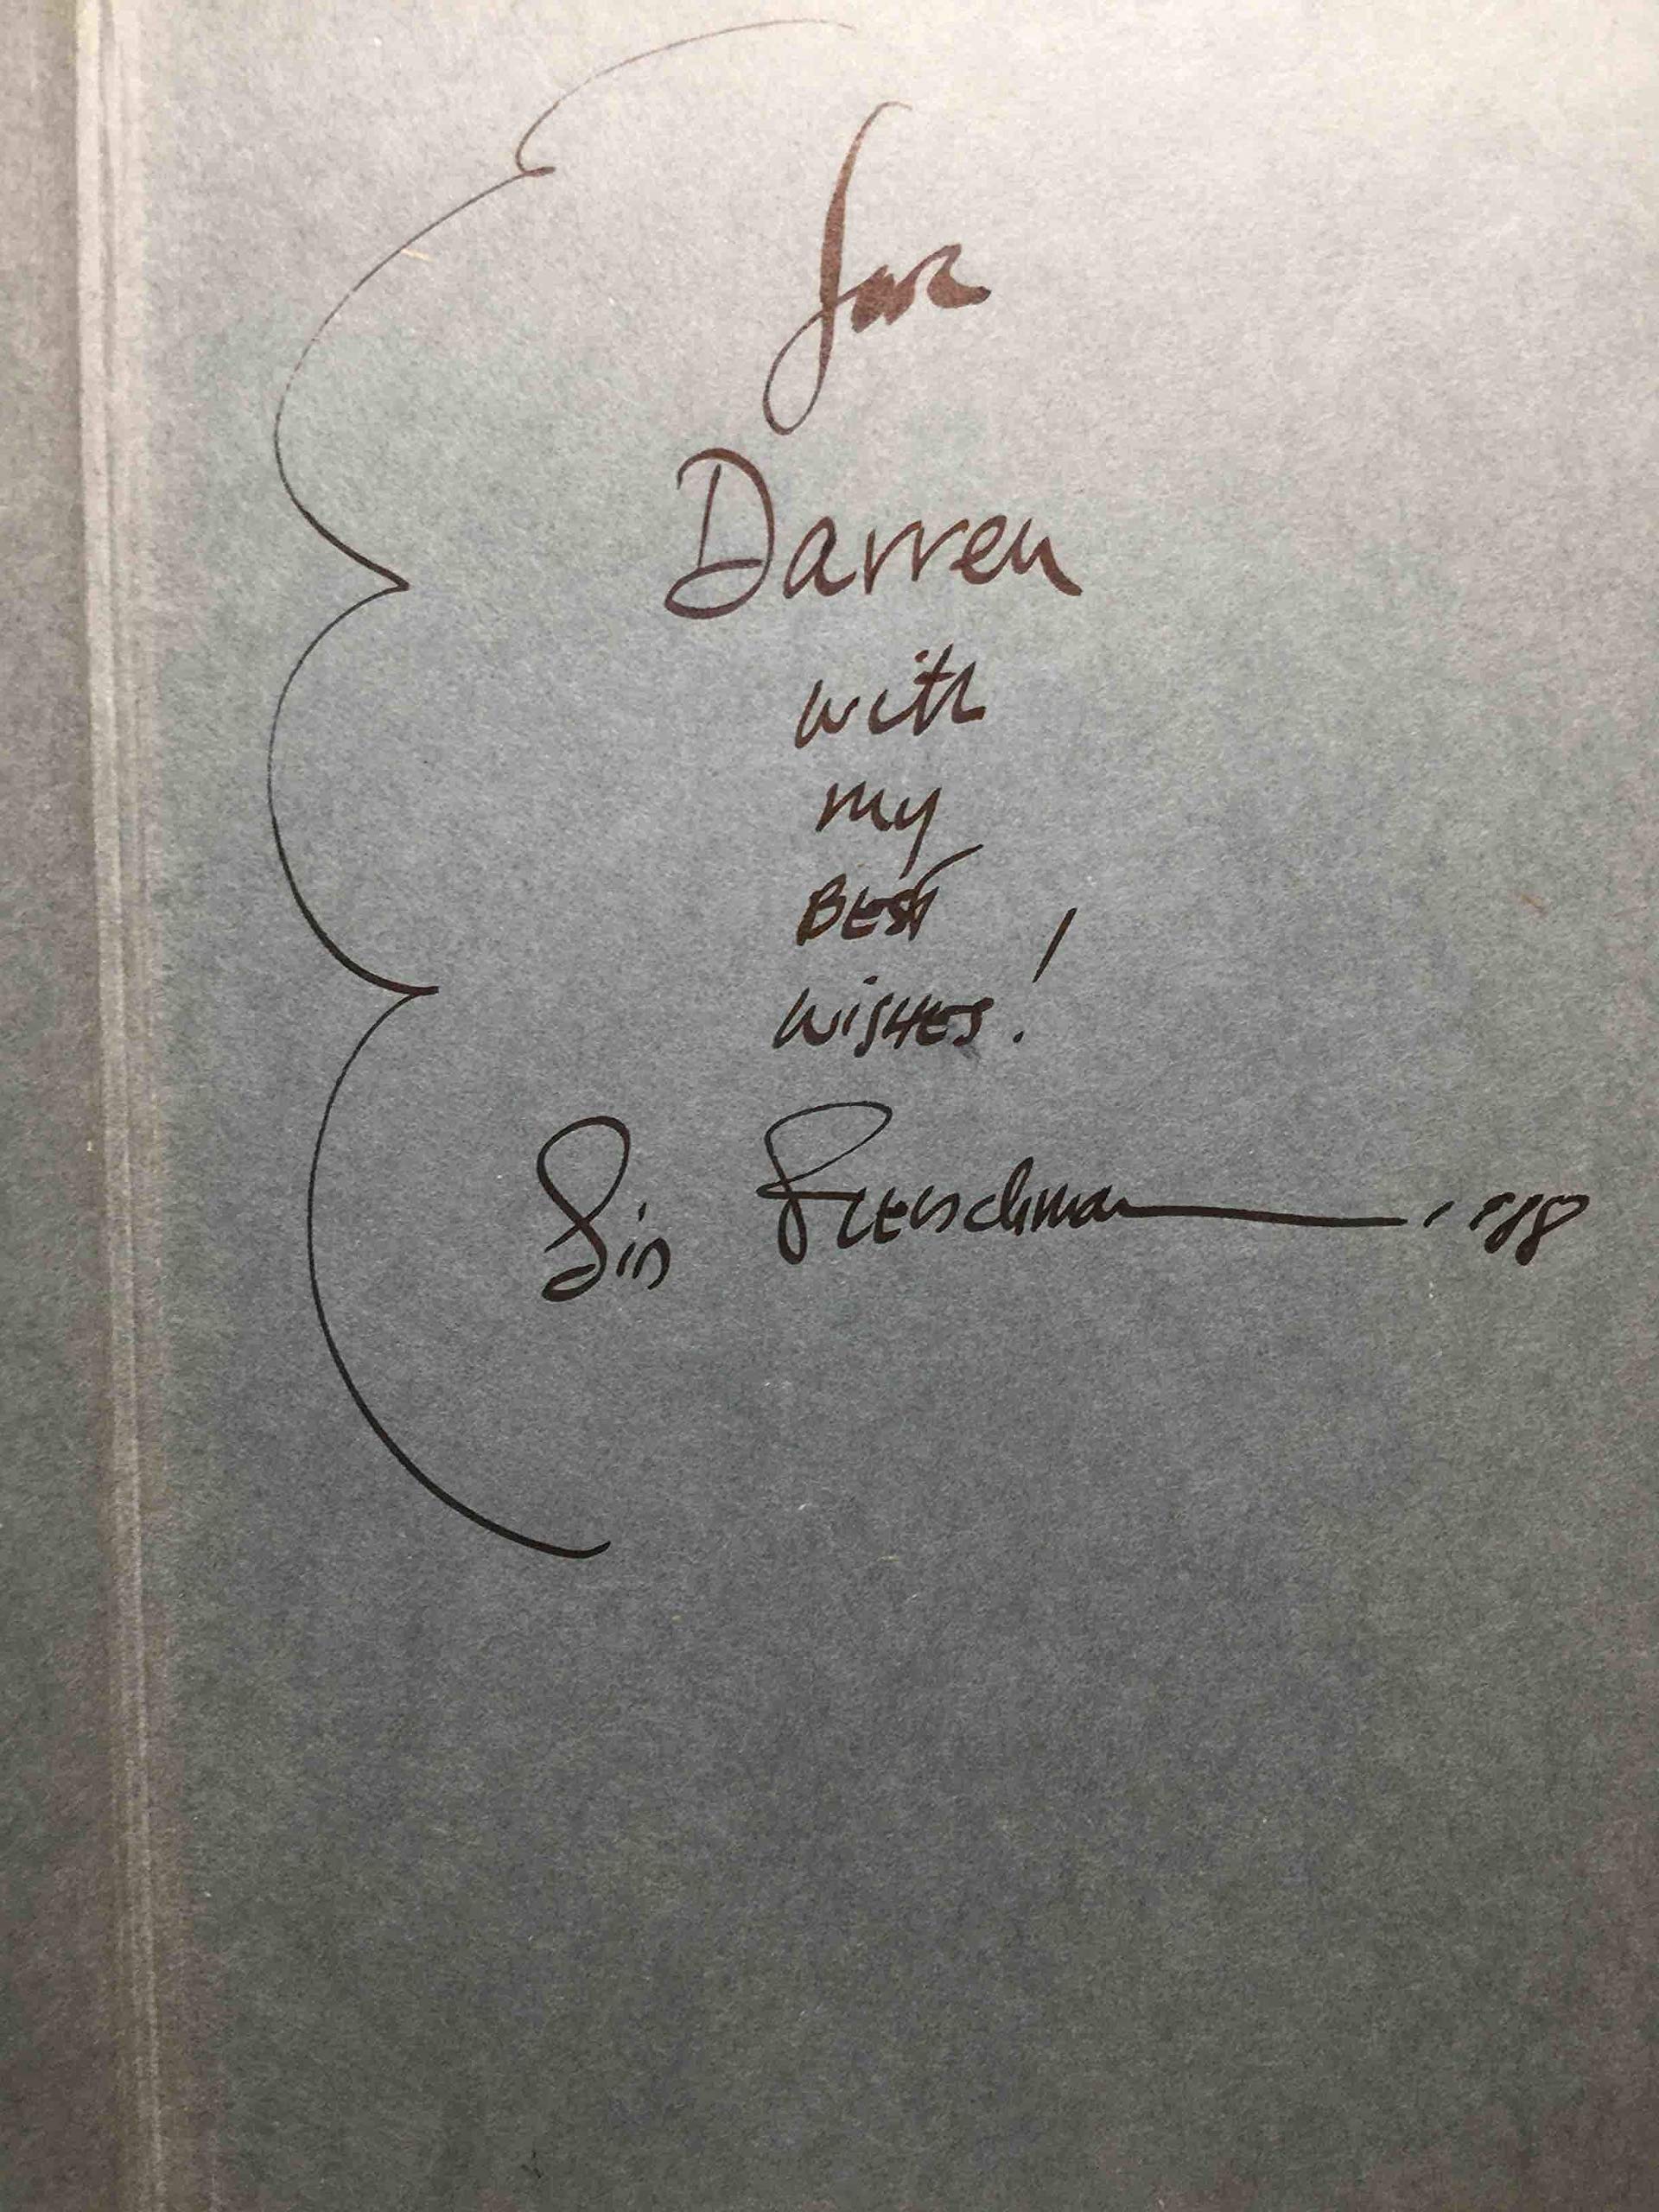 for
Darren
with
my
BEST
WISHES!
Sid Fleischman